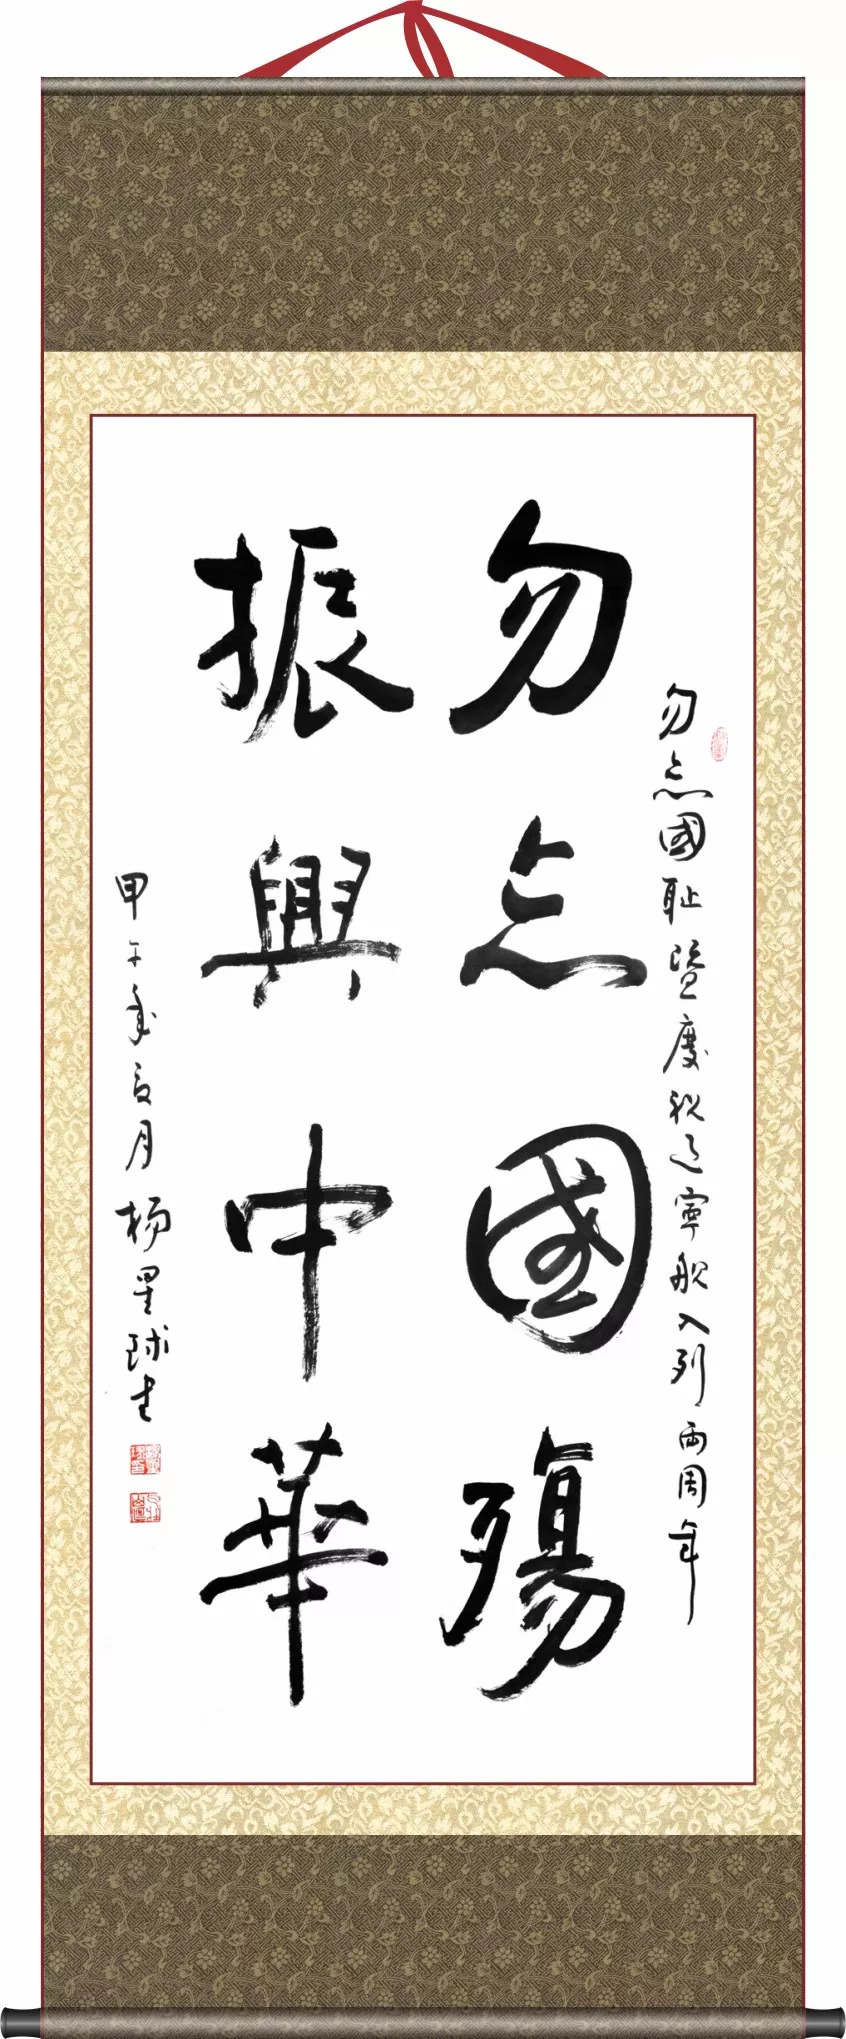 勿忘國恥暨慶祝遼寧舰入列两周年
勿忘國殤
振興中華
甲午年夏月杨星球书